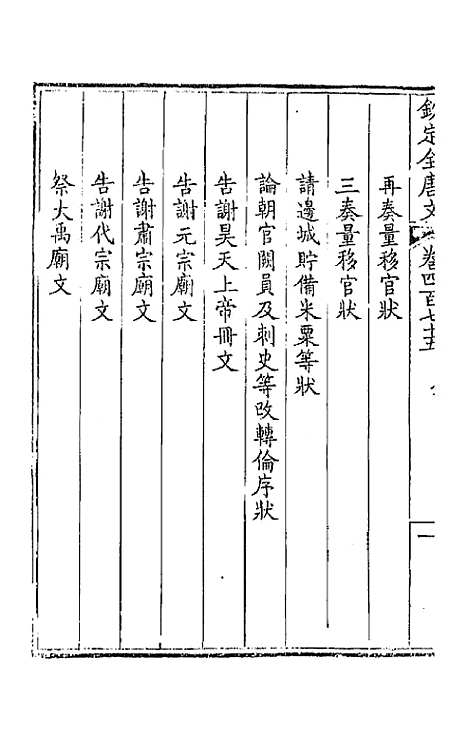 欽定全唐文 卷四百七十五 一
再奏量移官狀
三奏量移官狀
請邊城貯備米粟等狀
論朝官闕員及刺史等改轉倫序狀
告謝昊天上帝冊文
告謝元宗廟文
告謝肅宗廟文
告謝代宗廟文
祭大禹廟文